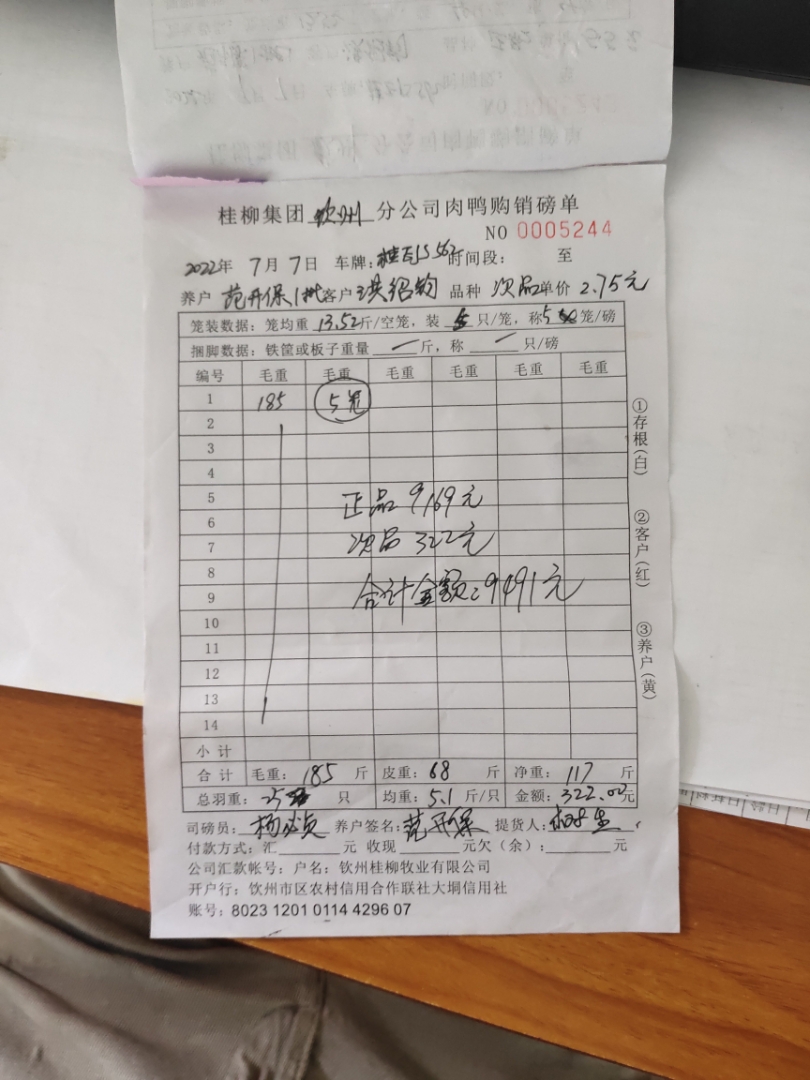 桂柳集团 钦州 分公司肉鸭购销磅单
NO 0005244
2022年 7月7日 车牌: 时间段: 至
养户 范开保1批 客户 洪绍钧 品种 次品 单价 2.75元
笼装数据: 笼均重 13.52斤/空笼, 装 5 只/笼, 称 5 笼/磅
捆脚数据: 铁筐或板子重量 — 斤, 称 — 只/磅
编号 毛重 毛重 毛重 毛重 毛重 毛重
1 185 5笼
2
3
4
5
正品 9169元
6
7
次品 322元
8
9
合计金额: 9491元
10
11
12
13
14
小计
合计 毛重: 185 斤 皮重: 68 斤 净重: 117 斤
总羽重: 23 只 均重: 5.1 斤/只 金额: 322.00元
司磅员: 养户签名: 范开保 提货人:
付款方式: 汇 元 收现 元欠(余): 元
公司汇款帐号: 户名: 钦州桂柳牧业有限公司
开户行: 钦州市区农村信用合作联社大垌信用社
账号: 8023 1201 0114 4296 07
①存根(白)
②客户(红)
③养户(黄)